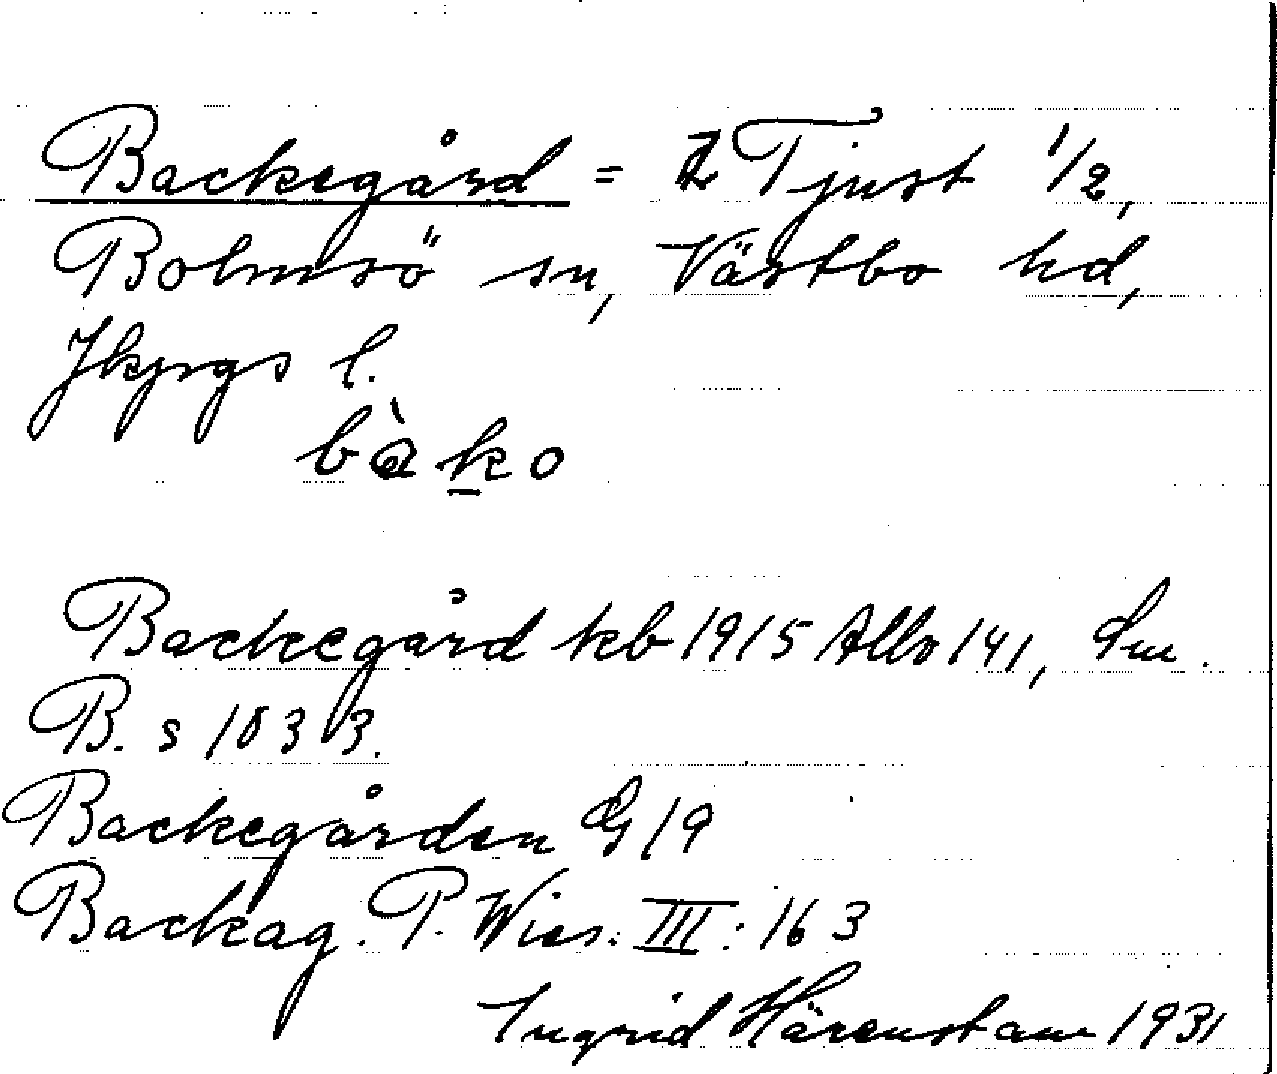 Backegård = Tjust 1/2,
Bolmsö sn, Västbo hd,
Jkpgs l.
bàko
Backegård kb 1915 Allbo 141, Sm.
B. s 1033.
Backegården G 19
Backag. P. Wies. III: 163
Ingrid Härenstam 1931